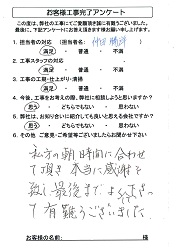 お客様工事完了アンケート
この度は、弊社の工事にてご愛顧頂き誠に有難うございました。
最後に、下記アンケートにお答え頂きます様お願い申し上げます。
1. 担当者の対応 （担当者名： ）
満足 ・ 普通 ・ 不満
2. 工事スタッフの対応
満足 ・ 普通 ・ 不満
3. 工事の工期・仕上がり・清掃
満足 ・ 普通 ・ 不満
4. 今後、工事をお考えの際、弊社に相談しようと思いますか?
思う ・ どちらでもない ・ 思わない
5. 弊社は、お知り合いに紹介しても良いと思える会社でしたか?
思う ・ どちらでもない ・ 思わない
6. その他 ご意見・ご希望等ございましたらお聞かせ下さい。
私方の朝時間に合わせ
て頂き 本当に感謝を
致し 最後まで
て有難うございました
お客様のお名前: 様